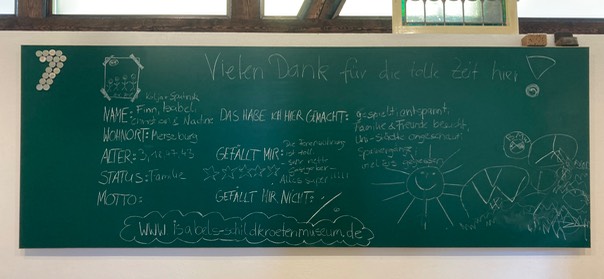 7
Vielen Dank für die tolle Zeit hier
NAME: Finn, Isabel,
Christian & Nadine
WOHNORT: Merseburg
ALTER: 3, 11, 47, 43
STATUS: Familie
MOTTO:
DAS HABE ICH HIER GEMACHT: gespielt, entspannt,
Familie & Freunde besucht,
Uni-Städte angeschaut
GEFÄLLT MIR: Die Ferienwohnung
ist toll
- sehr nette
Gastgeber -
Alles super !!!!!
GEFÄLLT MIR NICHT: ./.
www.isabels-schildkroetenmuseum.de